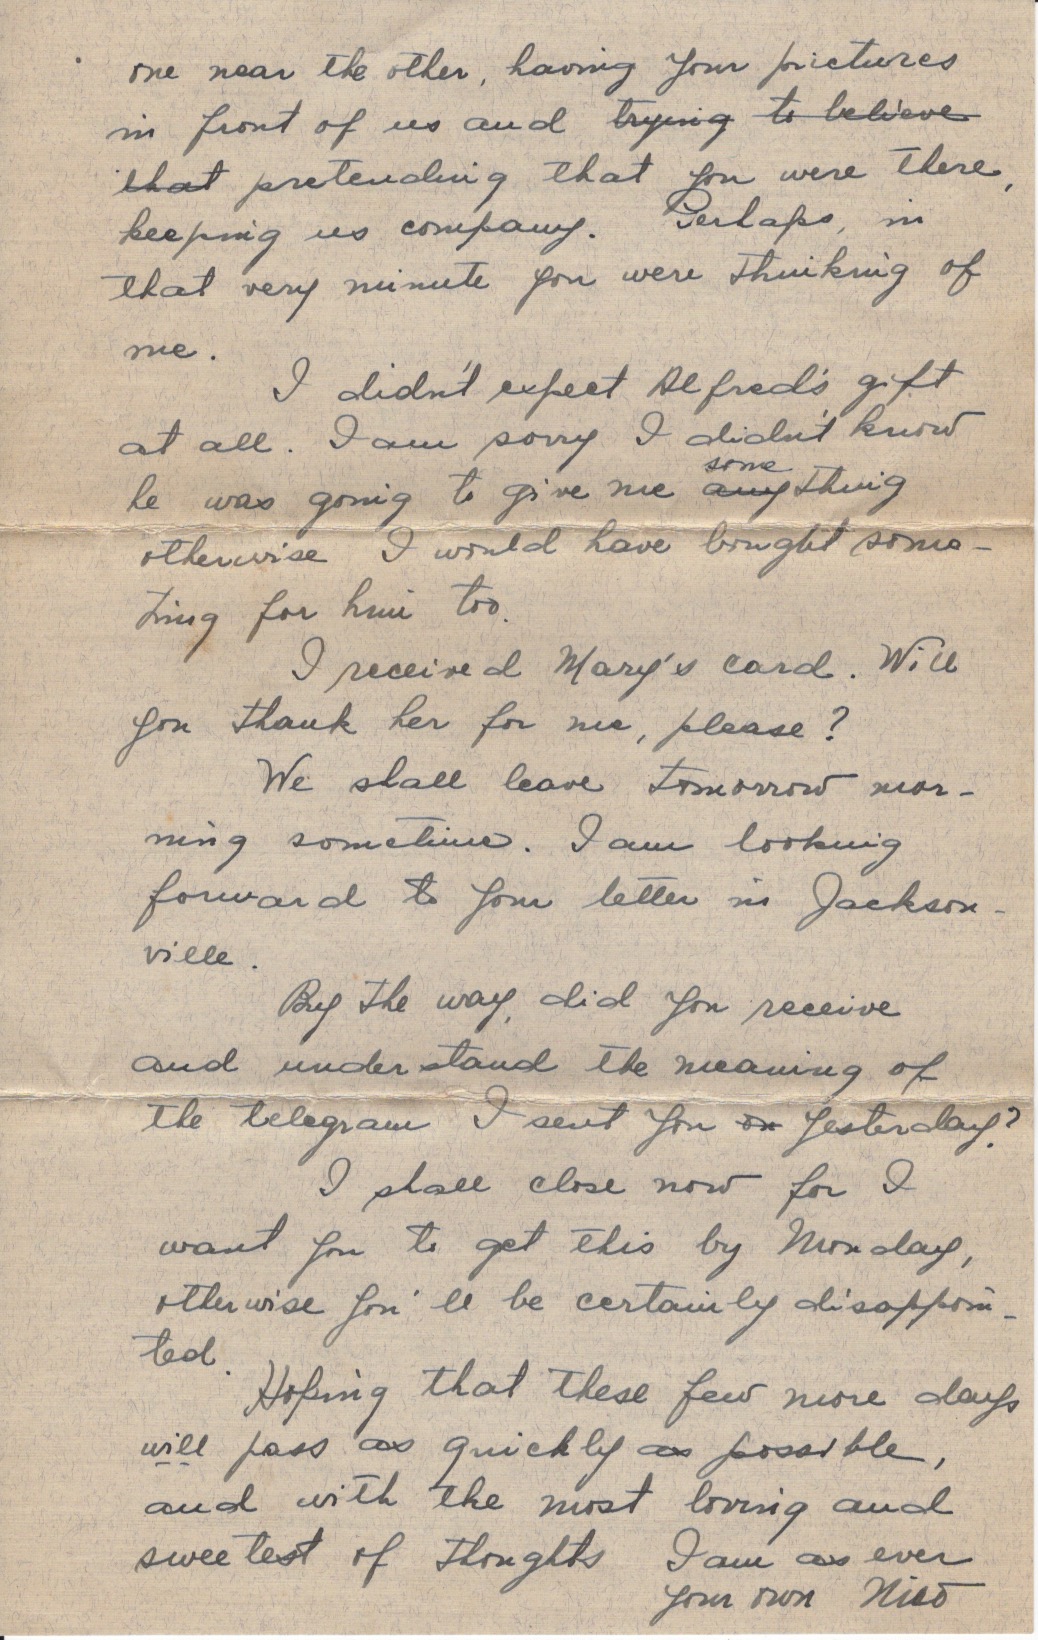 one near the other, having your pictures
in front of us and trying to believe
that pretending that you were there,
keeping us company. Perhaps, in
that very minute you were thinking of
me.
I didn't expect Alfred's gift
at all. I am sorry I didn't know
some
he was going to give me anything
otherwise I would have bought some-
ting for him too.
I received Mary's card. Will
you thank her for me, please?
We shall leave tomorrow mor-
ning sometime. I am looking
forward to your letter in Jackson-
ville.
By the way, did you receive
and understand the meaning of
the telegram I sent you on yesterday?
I shall close now for I
want you to get this by Monday,
otherwise you'll be certainly disappoin-
ted.
Hoping that these few more days
will pass as quickly as possible,
and with the most loving and
sweetest of thoughts I am as ever
your own Nico